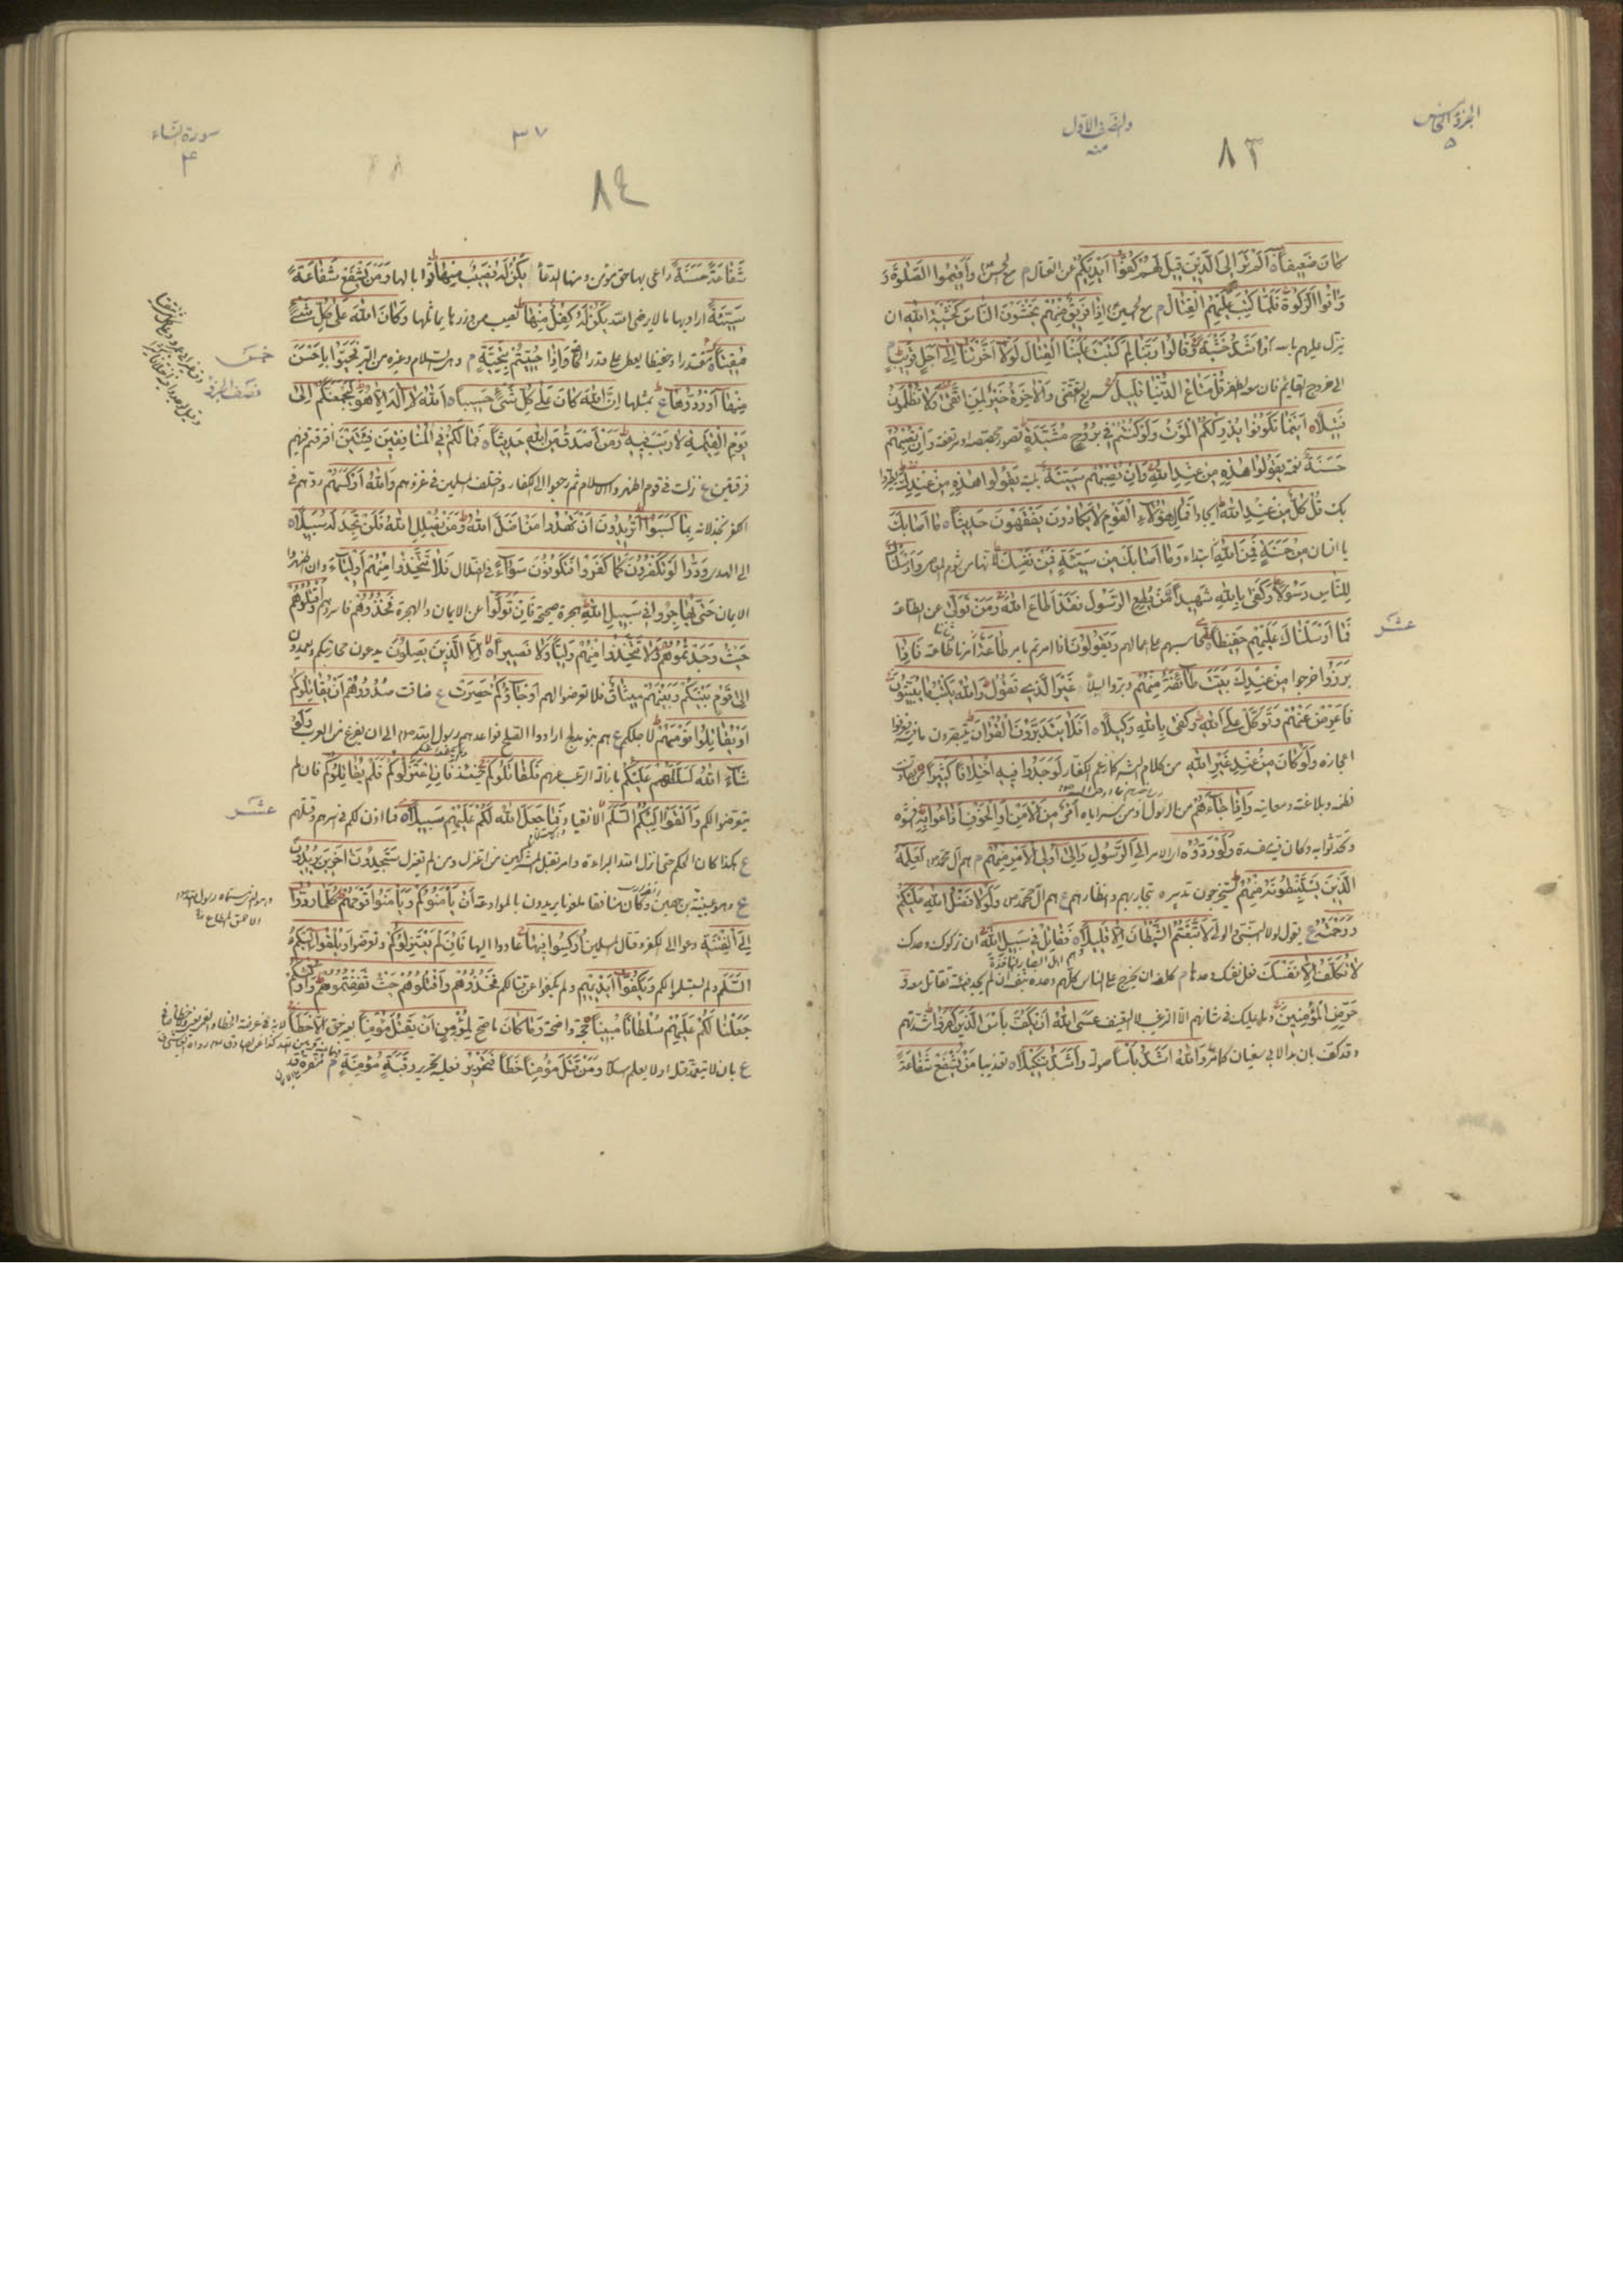 الجزء الخامس
٥
والنصف الاول
منه
٨٣
كَانَ ضَعِيفاً ه اَلَمْ تَرَ اِلَى الَّذِينَ قِيلَ لَهُمْ كُفُّوا اَيْدِيَكُمْ عن القتال م ع وَاَقِيمُوا الصَّلٰوةَ وَ
وَاٰتُوا الزَّكٰوةَ فَلَمَّا كُتِبَ عَلَيْهِمُ الْقِتَالُ م ع اِذَا فَرِيقٌ مِنْهُمْ يَخْشَوْنَ النَّاسَ كَخَشْيَةِ اللّٰهِ ان
ينزل عليهم باسه اَوْ اَشَدَّ خَشْيَةً وَقَالُوا رَبَّنَا لِمَ كَتَبْتَ عَلَيْنَا الْقِتَالَ لَوْلَا اَخَّرْتَنَا اِلَى اَجَلٍ قَرِيبٍ م
الى خروج القايم فان معه الظفر قُلْ مَتَاعُ الدُّنْيَا قَلِيلٌ سريع التقضى وَالْاٰخِرَةُ خَيْرٌ لِمَنِ اتَّقَى وَلَا تُظْلَمُونَ
فَتِيلًا ه اَيْنَمَا تَكُونُوا يُدْرِكْكُمُ الْمَوْتُ وَلَوْ كُنْتُمْ فِي بُرُوجٍ مُشَيَّدَةٍ قصور مجصصة او مرتفعة وَاِنْ تُصِبْهُمْ
حَسَنَةٌ نعمة يَقُولُوا هٰذِهِ مِنْ عِنْدِ اللّٰهِ وَاِنْ تُصِبْهُمْ سَيِّئَةٌ بلية يَقُولُوا هٰذِهِ مِنْ عِنْدِكَ
بك قُلْ كُلٌّ مِنْ عِنْدِ اللّٰهِ ايجادا فَمَالِ هٰؤُلَاءِ الْقَوْمِ لَا يَكَادُونَ يَفْقَهُونَ حَدِيثاً ه مَا اَصَابَكَ
يا انسان مِنْ حَسَنَةٍ فَمِنَ اللّٰهِ ابتداء وَمَا اَصَابَكَ مِنْ سَيِّئَةٍ فَمِنْ نَفْسِكَ لانها من شوم المعاصى وَاَرْسَلْنَاكَ
لِلنَّاسِ رَسُولًا وَكَفَى بِاللّٰهِ شَهِيداً مَنْ يُطِعِ الرَّسُولَ فَقَدْ اَطَاعَ اللّٰهَ وَمَنْ تَوَلَّى عن الطاعة
عشر
فَمَا اَرْسَلْنَاكَ عَلَيْهِمْ حَفِيظاً تحاسبهم على اعمالهم وَيَقُولُونَ اذا امرتم بامر طَاعَةٌ امرنا طاعة فَاِذَا
بَرَزُوا خرجوا مِنْ عِنْدِكَ بَيَّتَ طَائِفَةٌ مِنْهُمْ دبروا ليلا غَيْرَ الَّذِي تَقُولُ وَاللّٰهُ يَكْتُبُ مَا يُبَيِّتُونَ
فَاَعْرِضْ عَنْهُمْ وَتَوَكَّلْ عَلَى اللّٰهِ وَكَفَى بِاللّٰهِ وَكِيلًا ه اَفَلَا يَتَدَبَّرُونَ الْقُرْاٰنَ يتبصرون ما فيه فيعرفوا
اعجازه وَلَوْ كَانَ مِنْ عِنْدِ غَيْرِ اللّٰهِ من كلام البشر كما زعم الكفار لَوَجَدُوا فِيهِ اخْتِلَافاً كَثِيراً من تفاوت
نظمه وبلاغته ومعانيه وَاِذَا جَاءَهُمْ من الرسول او من سراياه اَمْرٌ مِنَ الْاَمْنِ اَوِ الْخَوْفِ اَذَاعُوا بِهِ افشوه
وتحدثوا به وكان فيه مفسدة وَلَوْ رَدُّوهُ اى الامر اِلَى الرَّسُولِ وَاِلَى اُولِي الْاَمْرِ مِنْهُمْ م هم آل محمد ص لَعَلِمَهُ
الَّذِينَ يَسْتَنْبِطُونَهُ مِنْهُمْ يستخرجون تدبيره بتجاربهم وانظارهم ع هم آل محمد ص وَلَوْلَا فَضْلُ اللّٰهِ عَلَيْكُمْ
وَرَحْمَتُهُ ع يقول لولا النبى والولى لَاتَّبَعْتُمُ الشَّيْطَانَ اِلَّا قَلِيلًا ه فَقَاتِلْ فِي سَبِيلِ اللّٰهِ ان تركوك وحدك
وهم اهل البصاير النافذة
لَا تُكَلَّفُ اِلَّا نَفْسَكَ فعل نفسك وحدها م كلف ان يخرج على الناس كلهم وحده بنفسه ان لم يجد فئة تقاتل معه و
حَرِّضِ الْمُؤْمِنِينَ وما عليك فى شانهم الا الترغيب لا التعنيف عَسَى اللّٰهُ اَنْ يَكُفَّ بَأْسَ الَّذِينَ كَفَرُوا شدتهم
وقد كف بان بدا لابى سفيان كما مر وَاللّٰهُ اَشَدُّ بَأْساً صولة وَاَشَدُّ تَنْكِيلًا ه تعذيبا مَنْ يَشْفَعْ شَفَاعَةً
سورة النساء
٤
٣٧
٨٤
شَفَاعَةً حَسَنَةً راعى بها حق مؤمن ومنها الدعا يَكُنْ لَهُ نَصِيبٌ مِنْهَا ثوابا لها وَمَنْ يَشْفَعْ شَفَاعَةً
سَيِّئَةً اراد بها ما لا يرضى الله يَكُنْ لَهُ كِفْلٌ مِنْهَا نصيب من وزرها يماثلها وَكَانَ اللّٰهُ عَلَى كُلِّ شَيْءٍ
خمس
مُقِيتاً مقتدرا وحفيظا يعطى على قدر الحاجة وَاِذَا حُيِّيتُمْ بِتَحِيَّةٍ م هى السلام وغيره من البر فَحَيُّوا بِاَحْسَنَ
نصف الجزء
مِنْهَا اَوْ رُدُّوهَا بمثلها اِنَّ اللّٰهَ كَانَ عَلَى كُلِّ شَيْءٍ حَسِيباً ه اَللّٰهُ لَا اِلٰهَ اِلَّا هُوَ لَيَجْمَعَنَّكُمْ اِلَى
يَوْمِ الْقِيٰمَةِ لَا رَيْبَ فِيهِ وَمَنْ اَصْدَقُ مِنَ اللّٰهِ حَدِيثاً ه فَمَا لَكُمْ فِي الْمُنَافِقِينَ فِئَتَيْنِ افرقتم فيهم
فرقتين ع نزلت فى قوم اظهروا الاسلام ثم رجعوا الى الكفار واختلف المسلمين فى غزوهم وَاللّٰهُ اَرْكَسَهُمْ ردهم فى
الكفر بخذلانه بِمَا كَسَبُوا اَتُرِيدُونَ اَنْ تَهْدُوا مَنْ اَضَلَّ اللّٰهُ وَمَنْ يُضْلِلِ اللّٰهُ فَلَنْ تَجِدَ لَهُ سَبِيلًا ه
الى الهدى وَدُّوا لَوْ تَكْفُرُونَ كَمَا كَفَرُوا فَتَكُونُونَ سَوَاءً فى الضلال فَلَا تَتَّخِذُوا مِنْهُمْ اَوْلِيَاءَ وان اظهروا
الايمان حَتَّى يُهَاجِرُوا فِي سَبِيلِ اللّٰهِ هجرة صحيحة فَاِنْ تَوَلَّوْا عن الايمان والهجرة فَخُذُوهُمْ فاسروهم وَاقْتُلُوهُمْ
حَيْثُ وَجَدْتُمُوهُمْ وَلَا تَتَّخِذُوا مِنْهُمْ وَلِيّاً وَلَا نَصِيراً ه اِلَّا الَّذِينَ يَصِلُونَ يدعون محاربتكم ويعمدون
اِلَى قَوْمٍ بَيْنَكُمْ وَبَيْنَهُمْ مِيثَاقٌ فلا تعرضوا لهم اَوْ جَاؤُكُمْ حَصِرَتْ ع ضاقت صُدُورُهُمْ اَنْ يُقَاتِلُوكُمْ
اَوْ يُقَاتِلُوا قَوْمَهُمْ لاجلكم ع هم بنو مدلج ارادوا الصلح فواعدهم رسول الله ص الى ان يفرغ من العرب وَلَوْ
شَاءَ اللّٰهُ لَسَلَّطَهُمْ عَلَيْكُمْ بازالة الرعب عنهم فَلَقَاتَلُوكُمْ حينئذ فَاِنِ اعْتَزَلُوكُمْ فَلَمْ يُقَاتِلُوكُمْ فان لم
عشر
يتعرضوا لكم وَاَلْقَوْا اِلَيْكُمُ السَّلَمَ الانقياد فَمَا جَعَلَ اللّٰهُ لَكُمْ عَلَيْهِمْ سَبِيلًا ه فما اذن لكم فى اسرهم وقتلهم
ع هكذا كان الحكم حتى انزل الله البراءة وامر بقتل المشركين من اعتزل ومن لم يعتزل سَتَجِدُونَ اٰخَرِينَ يُرِيدُونَ
ع هو عيينة بن حصين وكان منافقا ملعونا يريدون بالموادعة اَنْ يَأْمَنُوكُمْ وَيَأْمَنُوا قَوْمَهُمْ كُلَّمَا رُدُّوا
اِلَى الْفِتْنَةِ دعوا الى الكفر وقتال المسلمين اُرْكِسُوا فِيهَا عادوا اليها فَاِنْ لَمْ يَعْتَزِلُوكُمْ وتعرضوا وَيُلْقُوا اِلَيْكُمُ
السَّلَمَ ولم يستسلموا لكم وَيَكُفُّوا اَيْدِيَهُمْ ولم يكفوا عن قتالكم فَخُذُوهُمْ وَاقْتُلُوهُمْ حَيْثُ ثَقِفْتُمُوهُمْ وَاُولٰئِكُمْ
جَعَلْنَا لَكُمْ عَلَيْهِمْ سُلْطَاناً مُبِيناً حجة واضحة وَمَا كَانَ ما صح لِمُؤْمِنٍ اَنْ يَقْتُلَ مُؤْمِناً بغير حق اِلَّا خَطَأً
ع بان لا يتعمد قتله او لا يعلم اسلامه وَمَنْ قَتَلَ مُؤْمِناً خَطَأً فَتَحْرِيرُ فعليه تحرير رَقَبَةٍ مُؤْمِنَةٍ م